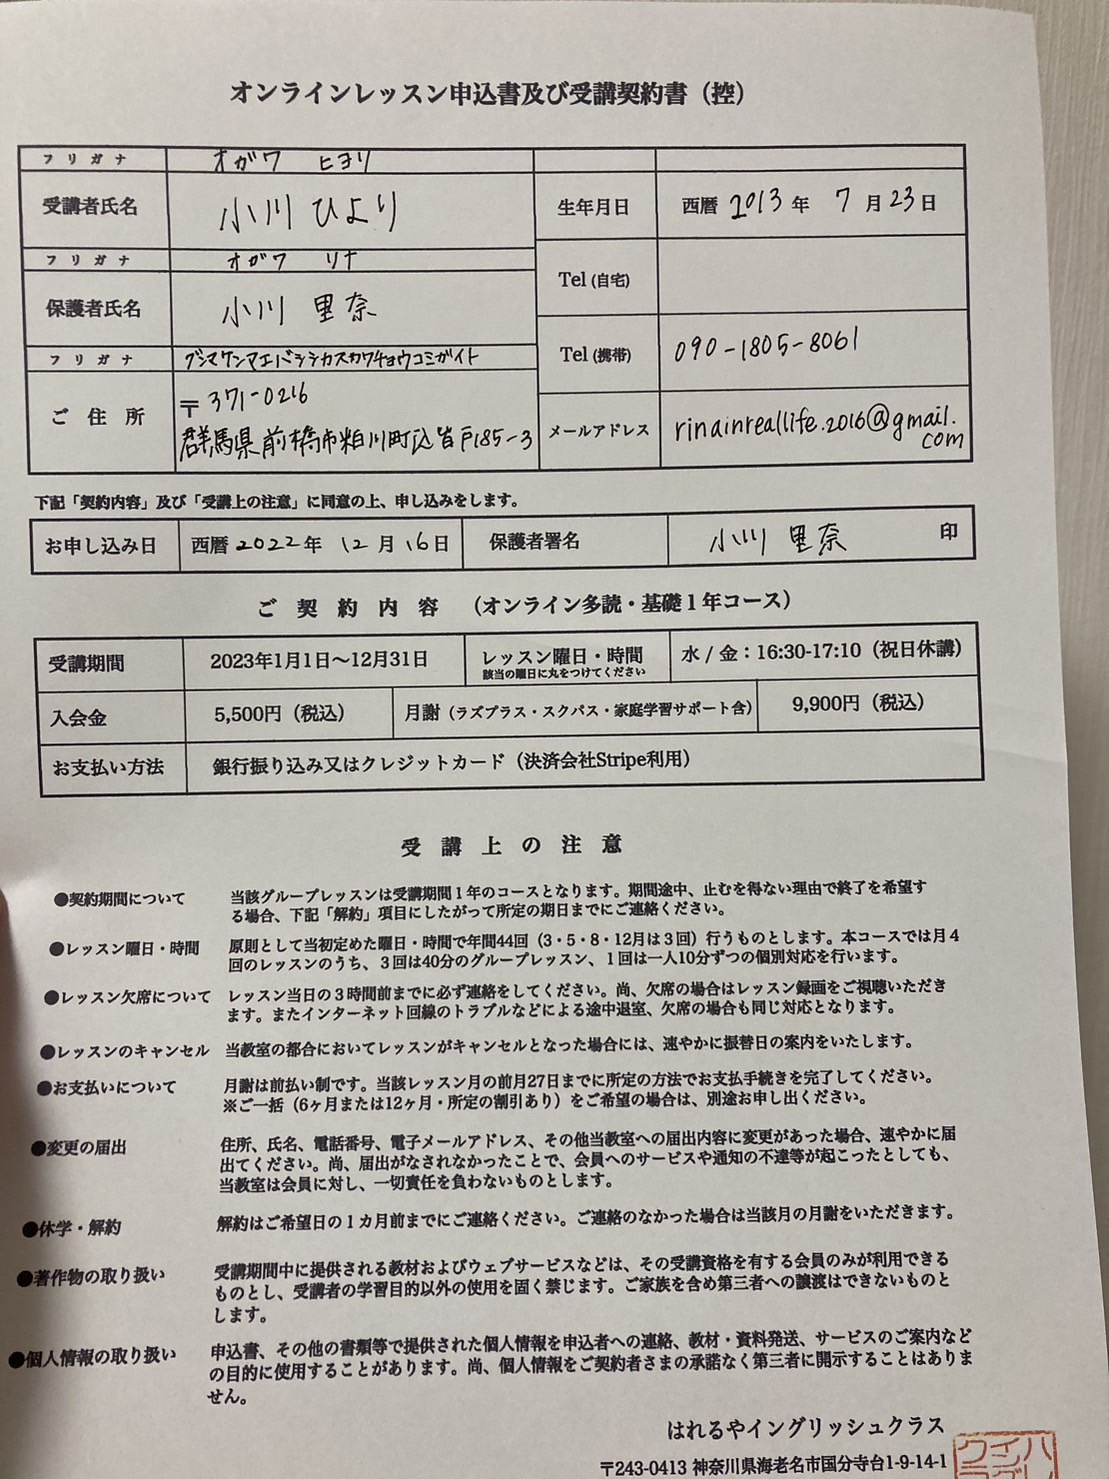 オンラインレッスン申込書及び受講契約書（控）
フリガナ オガワ ヒヨリ
受講者氏名 小川 ひより
生年月日 西暦 2013 年 7 月 23 日
フリガナ オガワ リナ
保護者氏名 小川 里奈
Tel (自宅)
フリガナ グンマケンマエバシシカスカワチョウコミガイト
Tel (携帯) 090-1805-8061
ご住所 〒371-0216
群馬県前橋市粕川町込皆戸185-3
メールアドレス rinainreallife.2016@gmail.
com
下記「契約内容」及び「受講上の注意」に同意の上、申し込みをします。
お申し込み日 西暦 2022 年 12 月 16 日 保護者署名 小川 里奈 印
ご契約内容 （オンライン多読・基礎１年コース）
受講期間 2023年1月1日〜12月31日 レッスン曜日・時間 水 / 金：16:30-17:10（祝日休講）
該当の曜日に丸をつけてください
入会金 5,500円（税込） 月謝（ラズプラス・スクパス・家庭学習サポート含） 9,900円（税込）
お支払い方法 銀行振り込み又はクレジットカード（決済会社Stripe利用）
受講上の注意
●契約期間について 当該グループレッスンは受講期間１年のコースとなります。期間途中、止むを得ない理由で終了を希望す
る場合、下記「解約」項目にしたがって所定の期日までにご連絡ください。
●レッスン曜日・時間 原則として当初定めた曜日・時間で年間44回（3・5・8・12月は３回）行うものとします。本コースでは月４
回のレッスンのうち、３回は40分のグループレッスン、１回は一人10分ずつの個別対応を行います。
●レッスン欠席について レッスン当日の３時間前までに必ず連絡をしてください。尚、欠席の場合はレッスン録画をご視聴いただき
ます。またインターネット回線のトラブルなどによる途中退室、欠席の場合も同じ対応となります。
●レッスンのキャンセル 当教室の都合においてレッスンがキャンセルとなった場合には、速やかに振替日の案内をいたします。
●お支払いについて 月謝は前払い制です。当該レッスン月の前月27日までに所定の方法でお支払手続きを完了してください。
※ご一括（6ヶ月または12ヶ月・所定の割引あり）をご希望の場合は、別途お申し出ください。
●変更の届出 住所、氏名、電話番号、電子メールアドレス、その他当教室への届出内容に変更があった場合、速やかに届
出てください。尚、届出がなされなかったことで、会員へのサービスや通知の不達等が起こったとしても、
当教室は会員に対し、一切責任を負わないものとします。
●休学・解約 解約はご希望日の１カ月前までにご連絡ください。ご連絡のなかった場合は当該月の月謝をいただきます。
●著作物の取り扱い 受講期間中に提供される教材およびウェブサービスなどは、その受講資格を有する会員のみが利用できる
ものとし、受講者の学習目的以外の使用を固く禁じます。ご家族を含め第三者への譲渡はできないものと
します。
●個人情報の取り扱い 申込書、その他の書類等で提供された個人情報を申込者への連絡、教材・資料発送、サービスのご案内など
の目的に使用することがあります。尚、個人情報をご契約者さまの承諾なく第三者に開示することはありま
せん。
はれるやイングリッシュクラス
〒243-0413 神奈川県海老名市国分寺台1-9-14-1